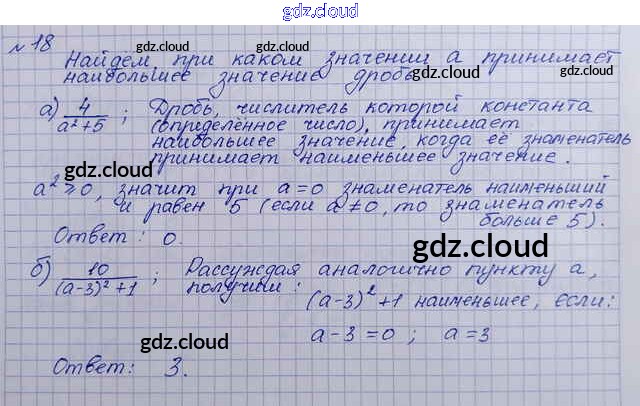 gdz.cloud
№ 18
gdz.cloud gdz.cloud
Найдём, при каком значении a принимает
наибольшее значение дробь
gdz.cloud gdz.cloud
а) 4/(a²+5) ; Дробь, числитель которой константа
(определённое число), принимает
наибольшее значение, когда её знаменатель
принимает наименьшее значение.
gdz.cloud
a² ≥ 0, значит при a = 0 знаменатель наименьший
и равен 5 (если a ≠ 0, то знаменатель
больше 5).
Ответ: 0.
gdz.cloud gdz.cloud
б) 10/((a-3)²+1) ; Рассуждая аналогично пункту а,
получим:
(a-3)²+1 наименьшее, если:
a-3=0 ; a=3
gdz.cloud gdz.cloud
Ответ: 3.